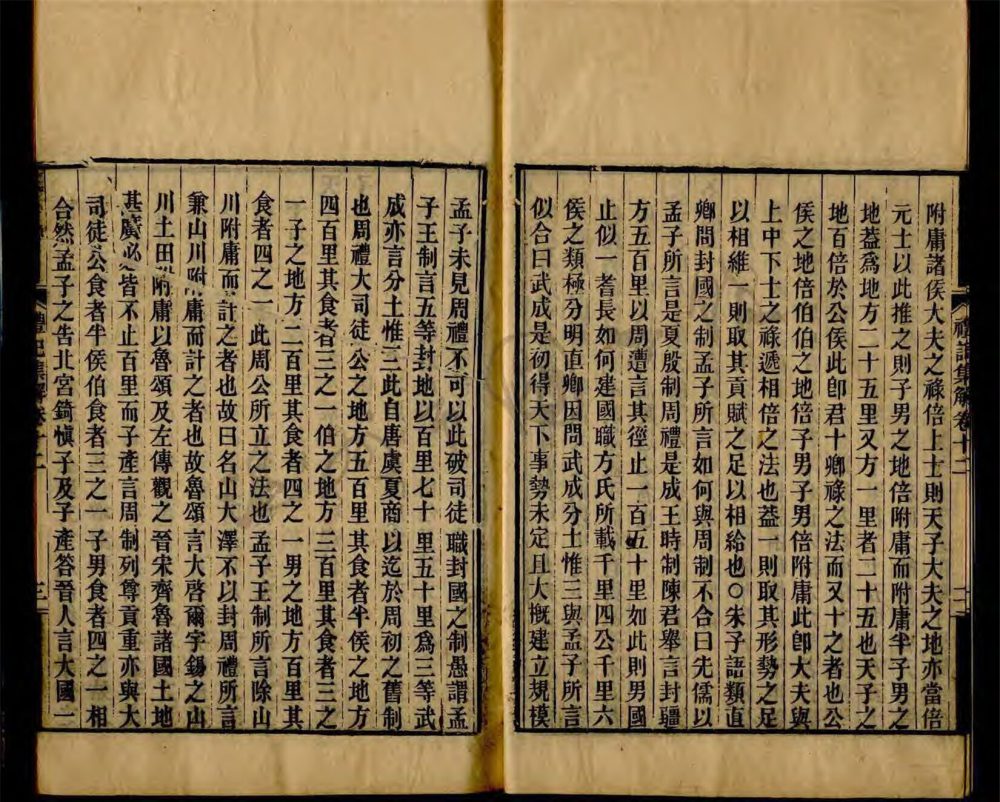 附庸諸侯大夫之祿倍上士則天子大夫之地亦當倍
元士以此推之則子男之地倍附庸而附庸半子男之
地葢爲地方二十五里又方一里者二十五也天子之
地百倍於公侯此卽君十卿祿之法而又十之者也公
侯之地倍伯伯之地倍子男子男倍附庸此卽大夫與
上中下士之祿遞相倍之法也葢一則取其形勢之足
以相維一則取其貢賦之足以相給也○朱子語類直
卿問封國之制孟子所言如何與周制不合曰先儒以
孟子所言是夏殷制周禮是成王時制陳君舉言封疆
方五百里以周遭言其徑止一百五十里如此則男國
止似一耆長如何建國職方氏所載千里四公千里六
侯之類極分明直卿因問武成分土惟三與孟子所言
似合曰武成是初得天下事勢未定且大槪建立規模
禮記集解卷十二
孟子未見周禮不可以此破司徒職封國之制愚謂孟
子王制言五等封地以百里七十里五十里爲三等武
成亦言分土惟三此自唐虞夏商以迄於周初之舊制
也周禮大司徒公之地方五百里其食者半侯之地方
四百里其食者三之一伯之地方三百里其食者三之
一子之地方二百里其食者四之一男之地方百里其
食者四之一此周公所立之法也孟子王制所言除山
川附庸而計之者也故曰名山大澤不以封周禮所言
兼山川附庸而計之者也故魯頌言大啓爾宇錫之山
川土田附庸以魯頌及左傳觀之晉宋齊魯諸國土地
其廣必皆不止百里而子產言周制列尊貢重亦與大
司徒公食者半侯伯食者三之一子男食者四之一相
合然孟子之告北宮錡愼子及子產答晉人言大國一
禮記集解卷十二
三